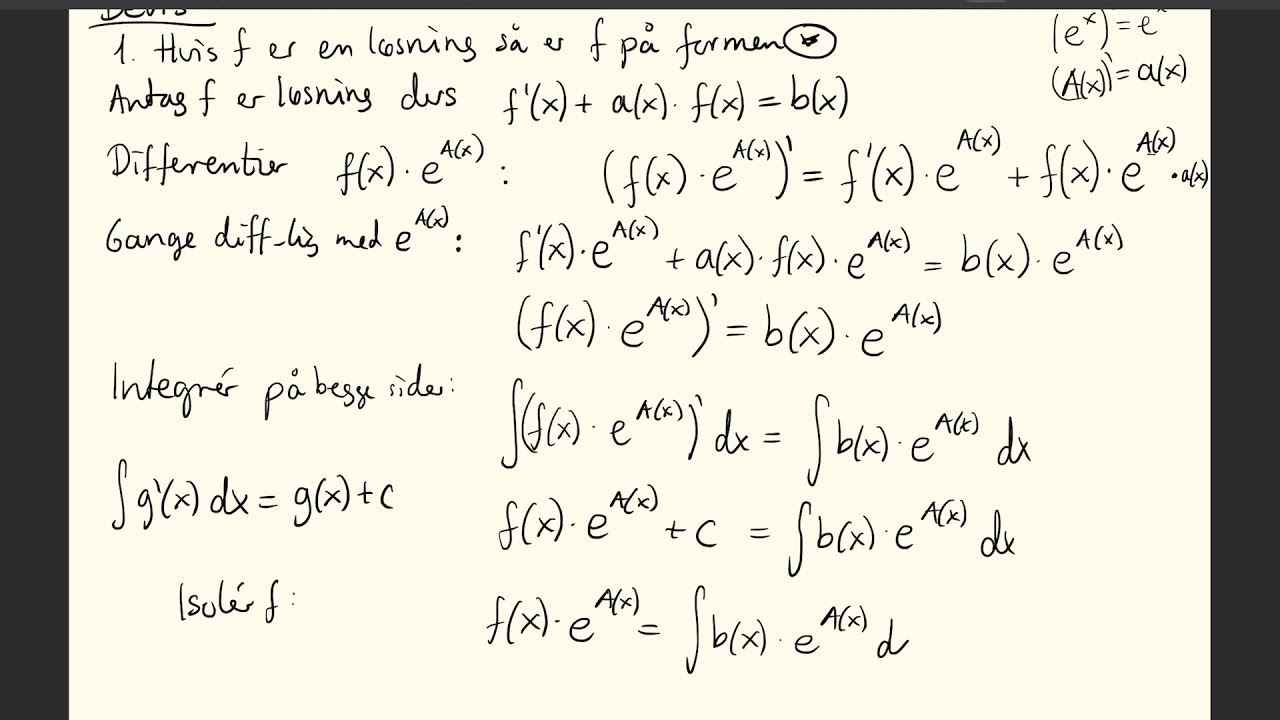 Bevis
1. Hvis f er en løsning så er f på formen *
(eˣ)' = eˣ
(A(x))' = a(x)
Antag f er løsning dvs f'(x) + a(x) · f(x) = b(x)
Differentier f(x) · e^A(x) : (f(x) · e^A(x))' = f'(x) · e^A(x) + f(x) · e^A(x) · a(x)
Gange diff-lig med e^A(x) : f'(x) · e^A(x) + a(x) · f(x) · e^A(x) = b(x) · e^A(x)
(f(x) · e^A(x))' = b(x) · e^A(x)
Integrér på begge sider: ∫(f(x) · e^A(x))' dx = ∫b(x) · e^A(x) dx
∫g'(x) dx = g(x) + c f(x) · e^A(x) + c = ∫b(x) · e^A(x) dx
Isolér f: f(x) · e^A(x) = ∫b(x) · e^A(x) d